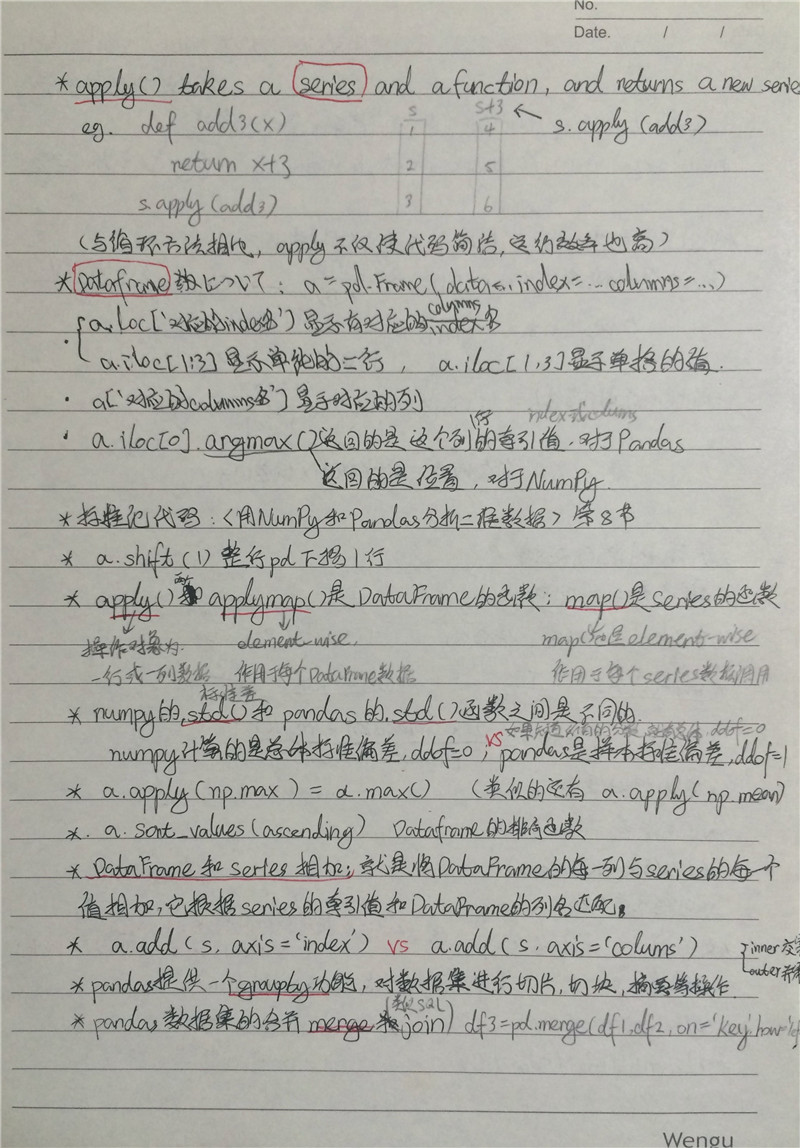 No.
Date. / /
* apply() takes a series and a function, and returns a new serie
eg. def add3(x) s s+3 ← s.apply(add3)
1 4
return x+3 2 5
s.apply(add3) 3 6
(与循环方法相比，apply不仅使代码简洁，运行效率也高)
* Dataframe 数について：a=pd.Frame(data=.., index=... columns=...)
a.loc['对应的index名'] 显示有对应的columns名
a.iloc[1:3]显示单独的二行，a.iloc[1,3]显示单独的值.
· a['对应的columns名']显示对应的列
index或colums
· a.iloc[0].argmax()返回的是这个列的行索引值.对于Pandas
返回的是位置，对于NumPy.
* 标准化代码：<用NumPy和Pandas分析二维数据> 第8节
* a.shift(1) 整行pd下移1行
* apply()和applymap()是DataFrame的函数；map()是series的函数
操作对象为 element-wise, map()是element-wise
一行或一列数据 作用于每个DataFrame数据 作用于每个series数据调用
标准差
* numpy的.std()和pandas的.std()函数之间是不同的.
ddof=0
numpy计算的是总体标准偏差,ddof=0, vs pandas是样本标准偏差,ddof=1
* a.apply(np.max) = a.max() (类似的还有 a.apply(np.mean)
* a.sort_values(ascending) Dataframe的排序函数
* DataFrame和series相加：就是将DataFrame的每一列与series的每一个
值相加,它根据series的索引值和DataFrame的列名匹配。
* a.add(s, axis='index') vs a.add(s, axis='colums')
inner交
outer并
* pandas提供一个groupby功能，对数据集进行切片,切块,摘要等操作.
(类似SQL
* pandas数据集的合并 merge join) df3=pd.merge(df1,df2,on='key',how=
Wengu